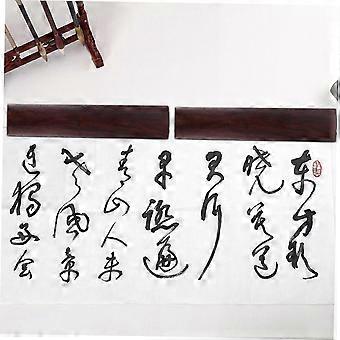 東方欲
晓莫道
君行
早踏遍
青山人未
老風景
独好会